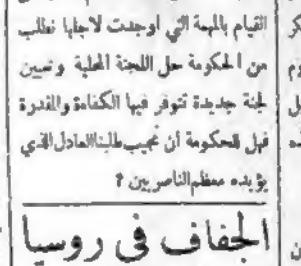 القيام بالمهمة التي اوجدت لاجلها نطلب
من الحكومة حل اللجنة المحلية وتعيين
لجنة جديدة تتوفر فيها الكفاءة والمقدرة
فهل للحكومة أن تجيب طلبنا العادل الذي
يؤيده معظم الناصريين ؟
الجفاف في روسيا